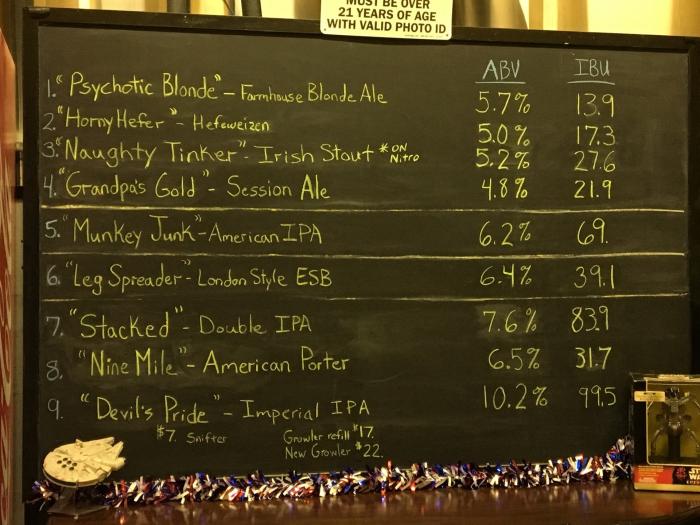 MUST BE OVER
21 YEARS OF AGE
WITH VALID PHOTO ID
ABV IBU
1. "Psychotic Blonde" - Farmhouse Blonde Ale 5.7% 13.9
2. "Horny Hefer" - Hefeweizen 5.0% 17.3
3. "Naughty Tinker" - Irish Stout *ON Nitro 5.2% 27.6
4. "Grandpa's Gold" - Session Ale 4.8% 21.9
5. "Munkey Junk" - American IPA 6.2% 69.
6. "Leg Spreader" - London Style ESB 6.4% 39.1
7. "Stacked" - Double IPA 7.6% 83.9
8. "Nine Mile" - American Porter 6.5% 31.7
9. "Devil's Pride" - Imperial IPA 10.2% 99.5
$7. Snifter Growler refill $17.
New Growler $22.